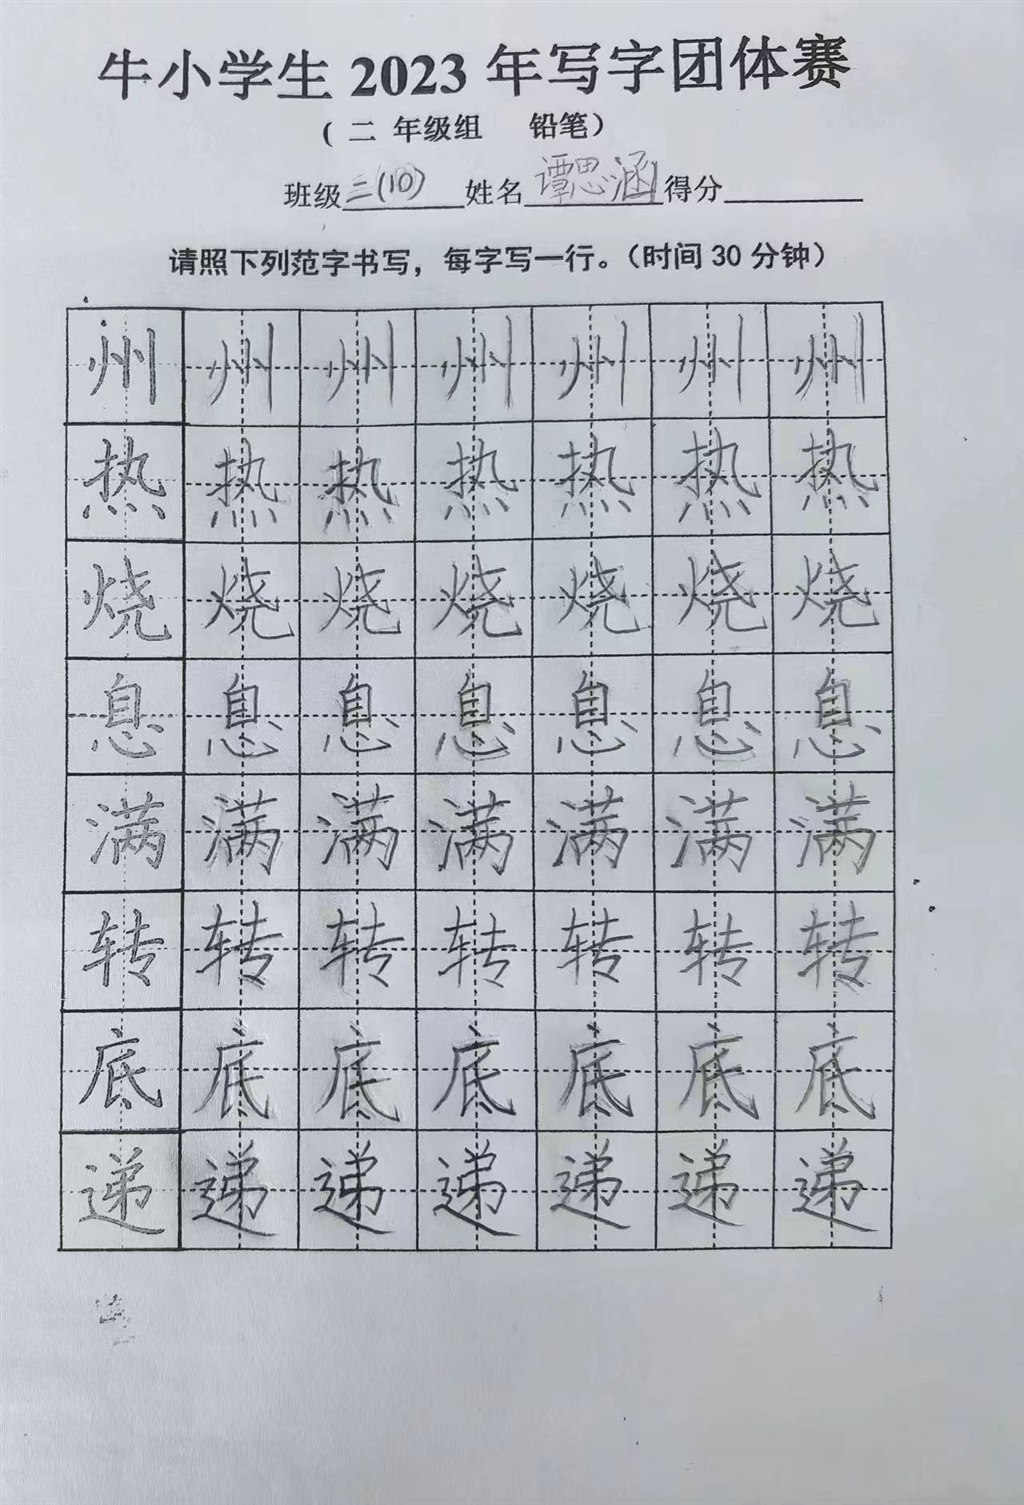 牛小学生 2023 年写字团体赛
（ 二 年级组 铅笔）
班级三(10) 姓名谭思涵得分
请照下列范字书写，每字写一行。（时间 30 分钟）
州 州 州 州 州 州 州
热 热 热 热 热 热 热
烧 烧 烧 烧 烧 烧 烧
息 息 息 息 息 息 息
满 满 满 满 满 满 满
转 转 转 转 转 转 转
底 底 底 底 底 底 底
递 递 递 递 递 递 递